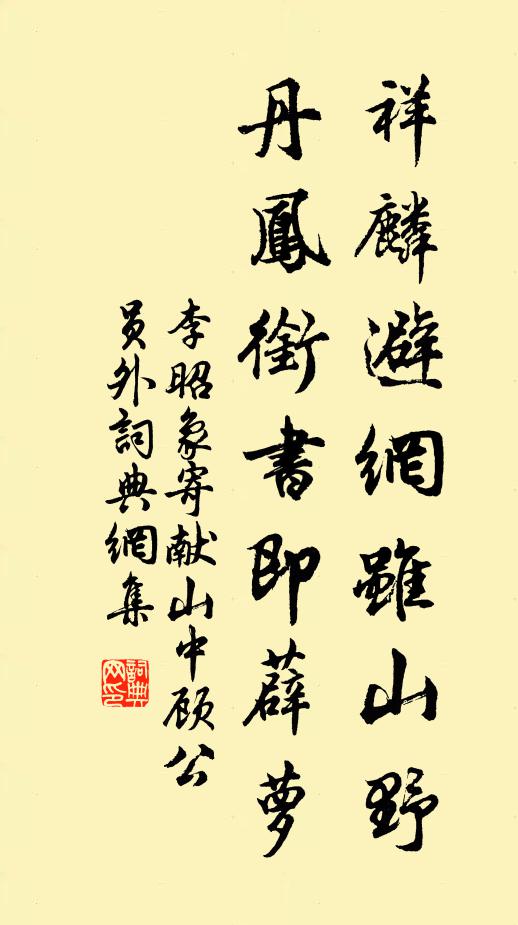 祥麟避網雖山野
丹鳳銜書即薜萝
李昭象寄献山中顾公
员外詞典網集
詞典网印